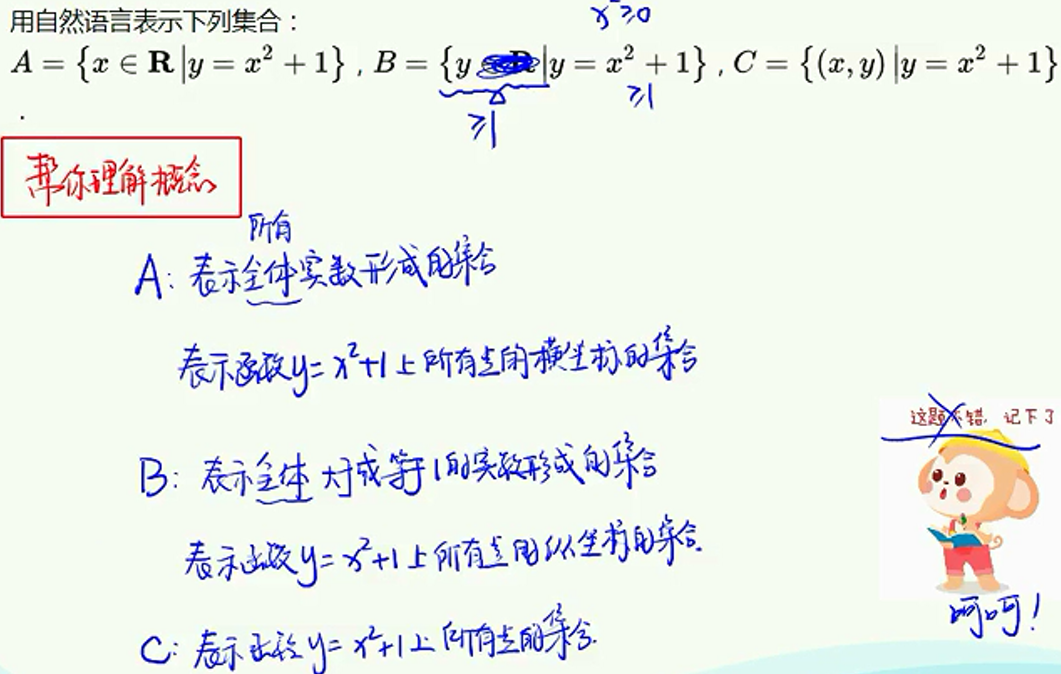 用自然语言表示下列集合：
x²≥0
A = {x ∈ R | y = x² + 1}，B = {y | y = x² + 1}，C = {(x, y) | y = x² + 1}
.
≥1
≥1
帮你理解概念
所有
A: 表示全体实数形成的集合
表示函数y=x²+1上所有点的横坐标的集合
这题不错，记下了
B: 表示全体大于或等于1的实数形成的集合
表示函数y=x²+1上所有点的纵坐标的集合.
呵呵！
C: 表示函数y=x²+1上所有点的集合.